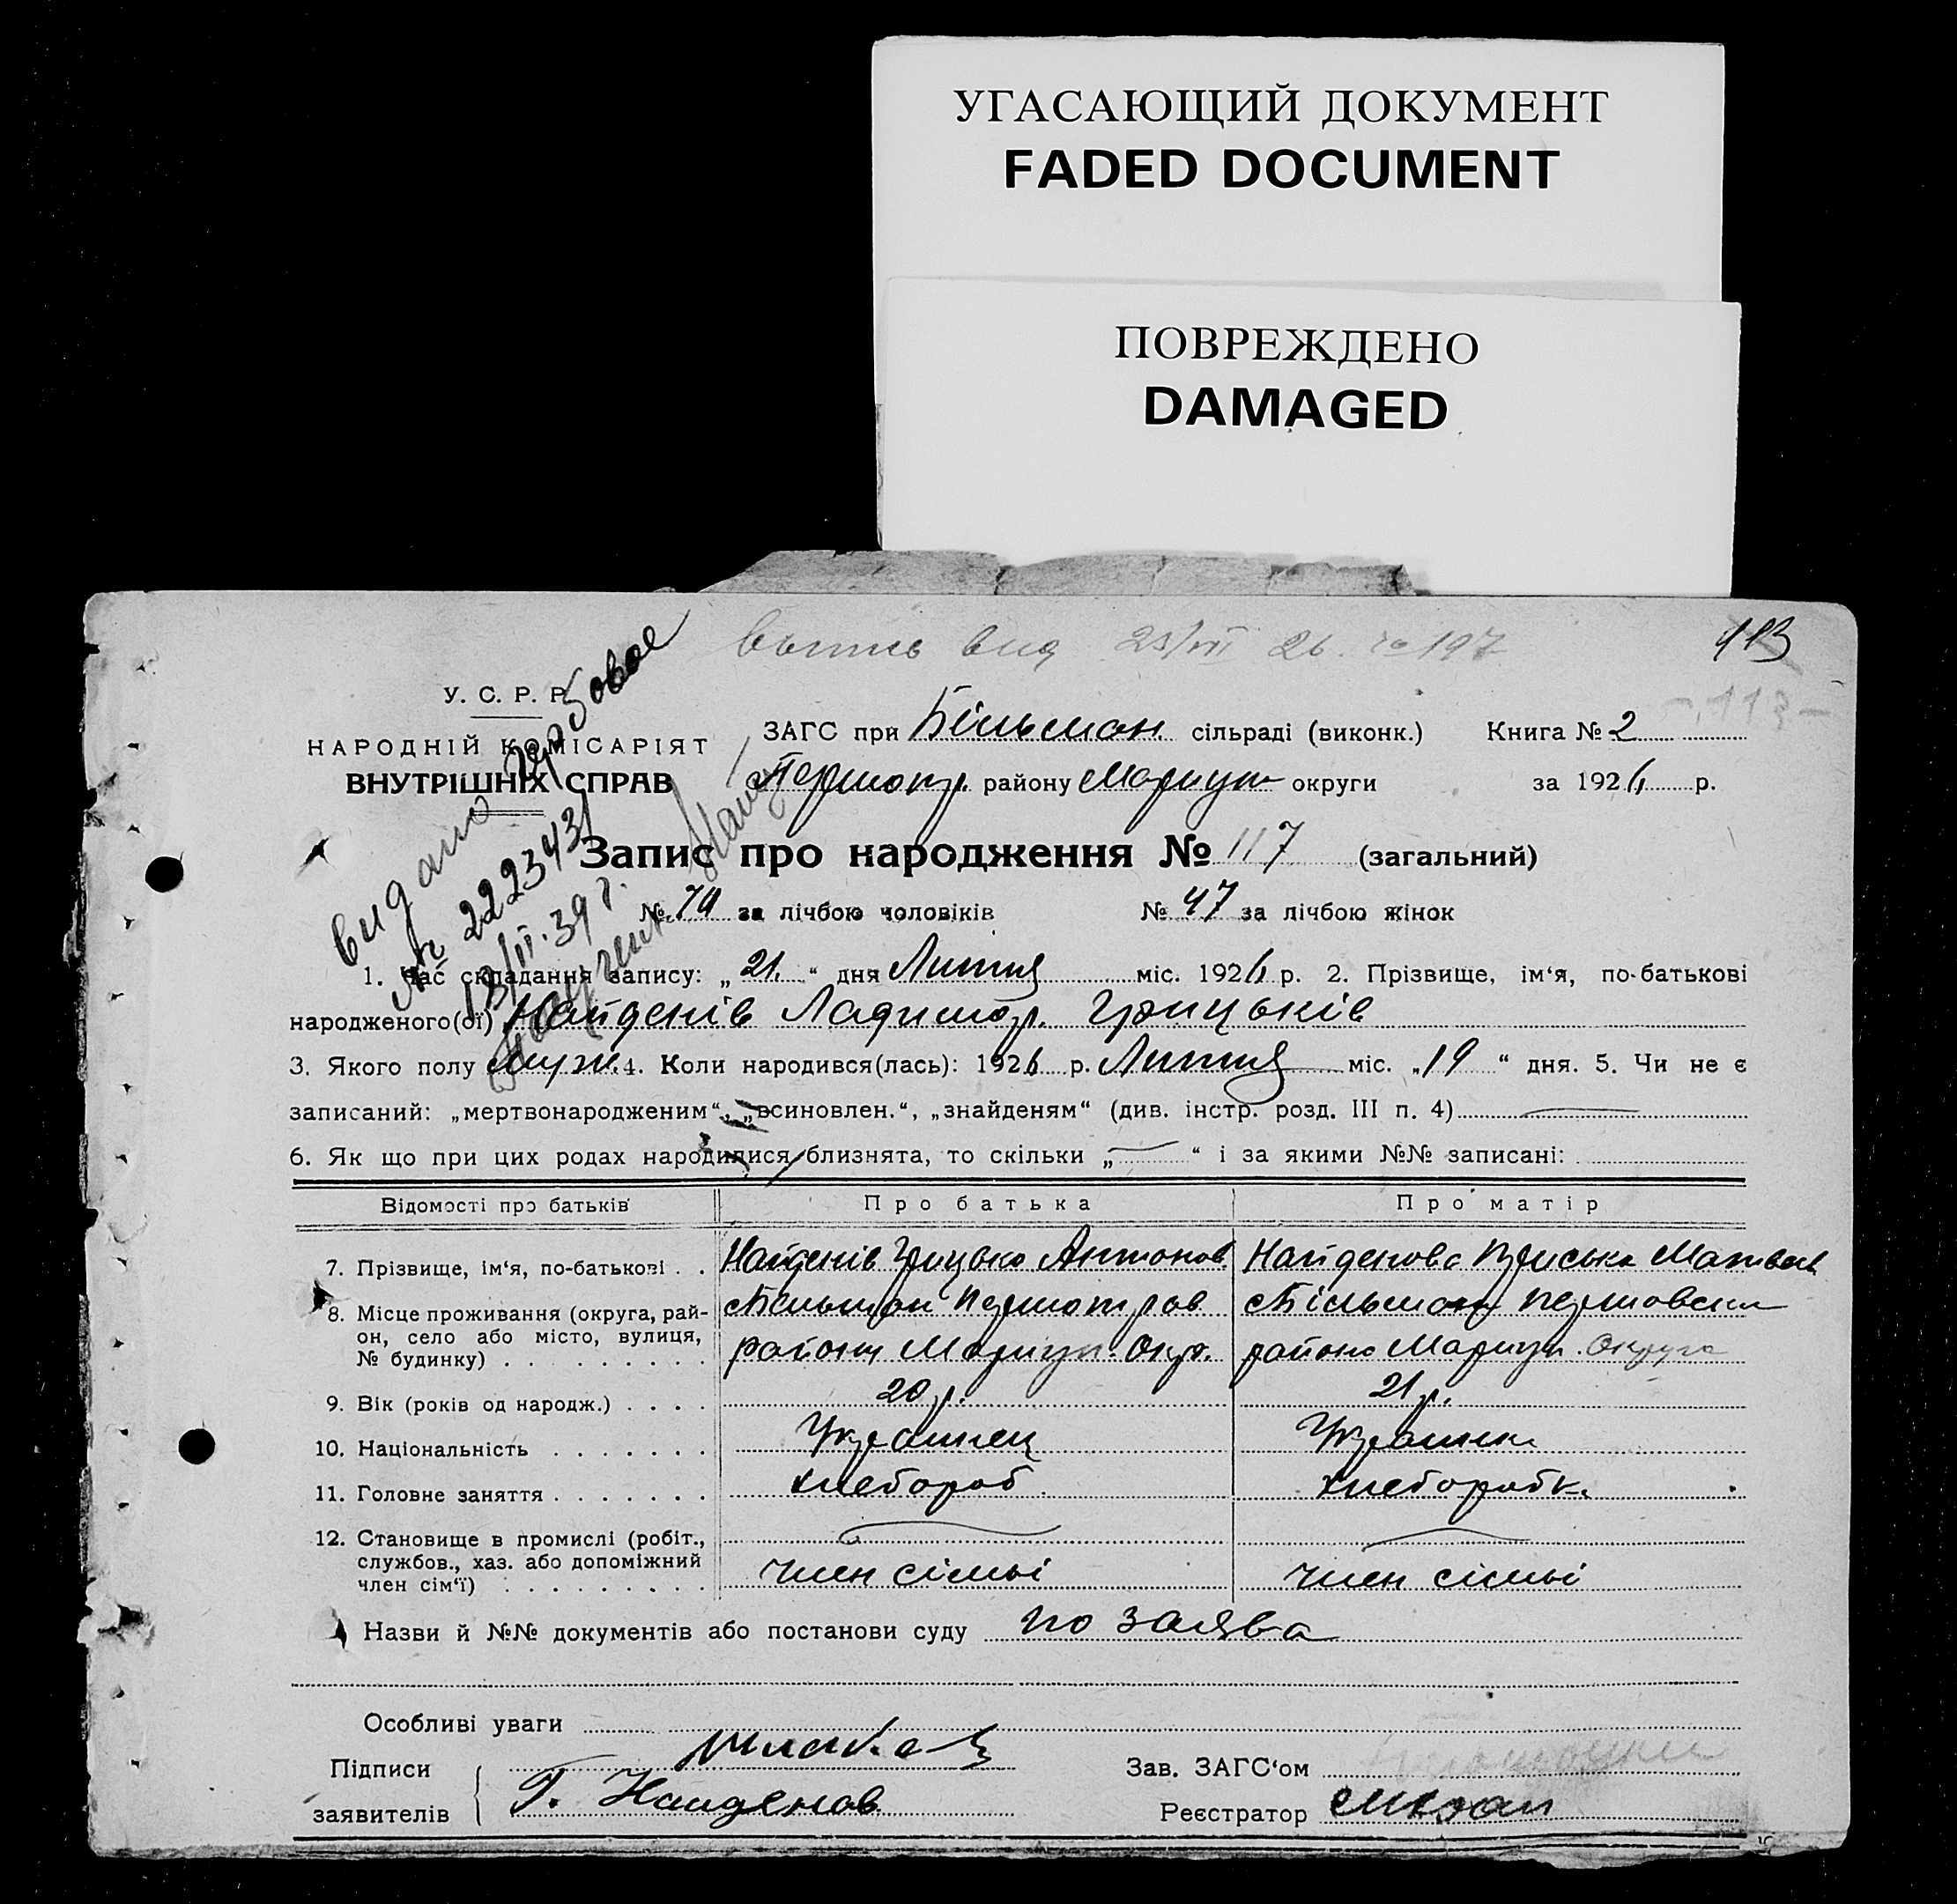 УГАСАЮЩИЙ ДОКУМЕНТ
FADED DOCUMENT
ПОВРЕЖДЕНО
DAMAGED
113
вид 26. 197
- 113 -
У. С. Р. Р.
НАРОДНІЙ КОМІСАРІЯТ
ВНУТРІШНІХ СПРАВ
гербовое
видано
№ 222343
39 г.
ЗАГС при Більман. сільраді (виконк.) Книга № 2
району Мариуп округи за 1926 р.
Запис про народження № 117 (загальний)
№ 70 за лічбою чоловіків № 47 за лічбою жінок
1. Час складання запису: „ 21. “ дня Лютия міс. 1926 р. 2. Прізвище, ім‘я, по-батькові
народженого(ої) Найденів Ладимор. Грицьків
3. Якого полу Муж. 4. Коли народився(лась): 1926 р. Лютия міс. „ 19 “ дня. 5. Чи не є
записаний: „мертвонародженим“, „всиновлен.“, „знайденям“ (див. інстр. розд. III п. 4)
6. Як що при цих родах народилися близнята, то скільки „ “ і за якими №№ записані:
Відомості про батьків Про батька Про матір
7. Прізвище, ім‘я, по-батькові . . Найденів Грицько Антонов. Найденова Матвеев
8. Місце проживання (округа, рай- Більман Більман
он, село або місто, вулиця, району Мариуп. Окр. району Мариуп. Округа
№ будинку) . . . . . . . . .
9. Вік (років од народж.) . . . . 20 р. 21 р.
10. Національність . . . . . . . Украинец Украинк
11. Головне заняття . . . . . . . хлебороб хлеборобк.
12. Становище в промислі (робіт.,
службов., хаз. або допоміжний член сімьі член сімьі
член сім‘ї) . . . . . . . . .
Назви й №№ документів або постанови суду по заява
Особливі уваги
Підписи Зав. ЗАГС‘ом
заявителів Г. Найденов Реєстратор